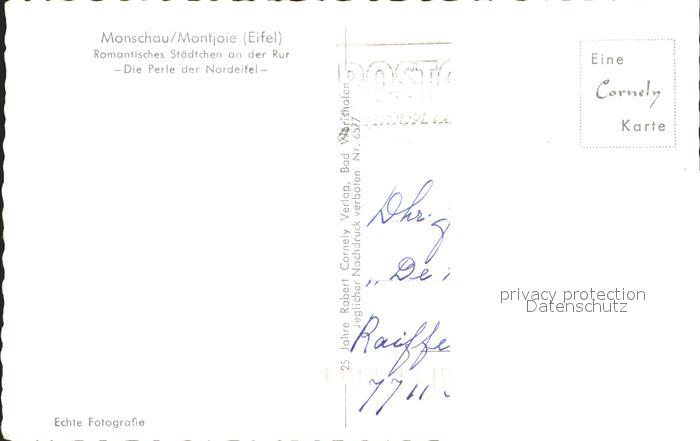 Monschau/Montjoie (Eifel)
Romantisches Städtchen an der Rur
—Die Perle der Nordeifel—
Eine
Cornely
Karte
25 Jahre Robert Cornely Verlag, Bad Wörishofen
Jeglicher Nachdruck verboten Nr. 6577
„De
Raiffe
privacy protection
Datenschutz
Echte Fotografie